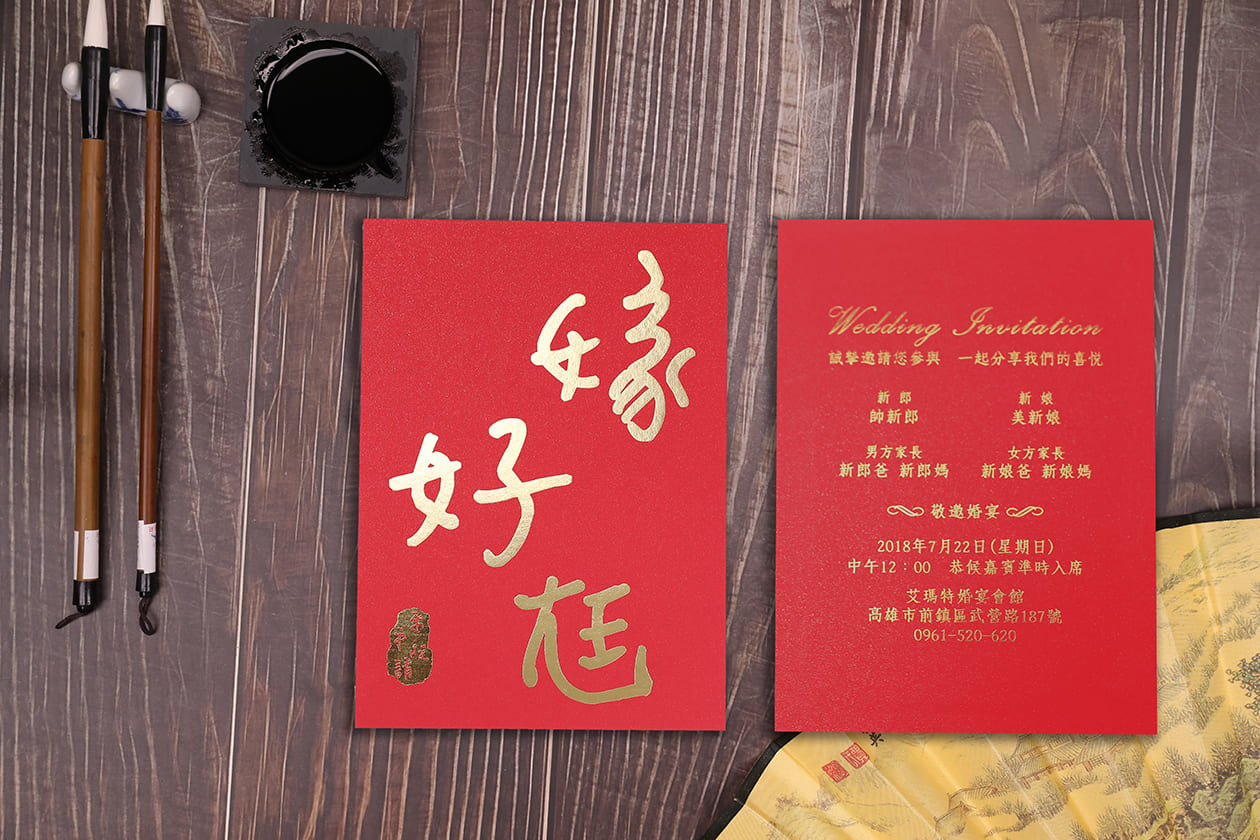 嫁
好
尪
Wedding Invitation
誠摯邀請您參與　一起分享我們的喜悅
新郎　新娘
帥新郎　美新娘
男方家長　女方家長
新郎爸 新郎媽　新娘爸 新娘媽
敬邀婚宴
2018年7月22日(星期日)
中午12：00　恭候嘉賓準時入席
艾瑪特婚宴會館
高雄市前鎮區武營路187號
0961-520-620